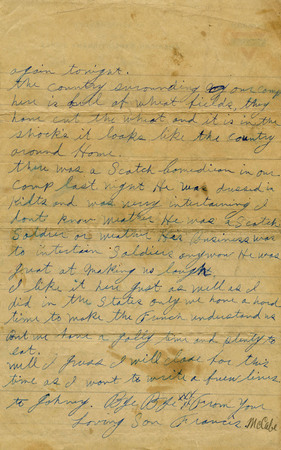 again tonight.
the country surounding our camp
here is full of wheat fields, they
have cut the wheat and it is in the
shocks it looks like the country
around Home.
there was a Scotch Comedian in our
camp last night He was dressed in
kidts and was very intertaining I
dont know weather He was a Scotch
Soldier or weather His Business was
to intertain Soldiers anyway He was
great at making us laugh
I like it here just as well as I
did in the States only we have a hard
time to make the French understand us
But we have a jolly time and plenty to
eat.
well I guess I will close for this
time as I want to write a few lines
to Johny. Bye Bye From Your
Loving Son Francis McCabe